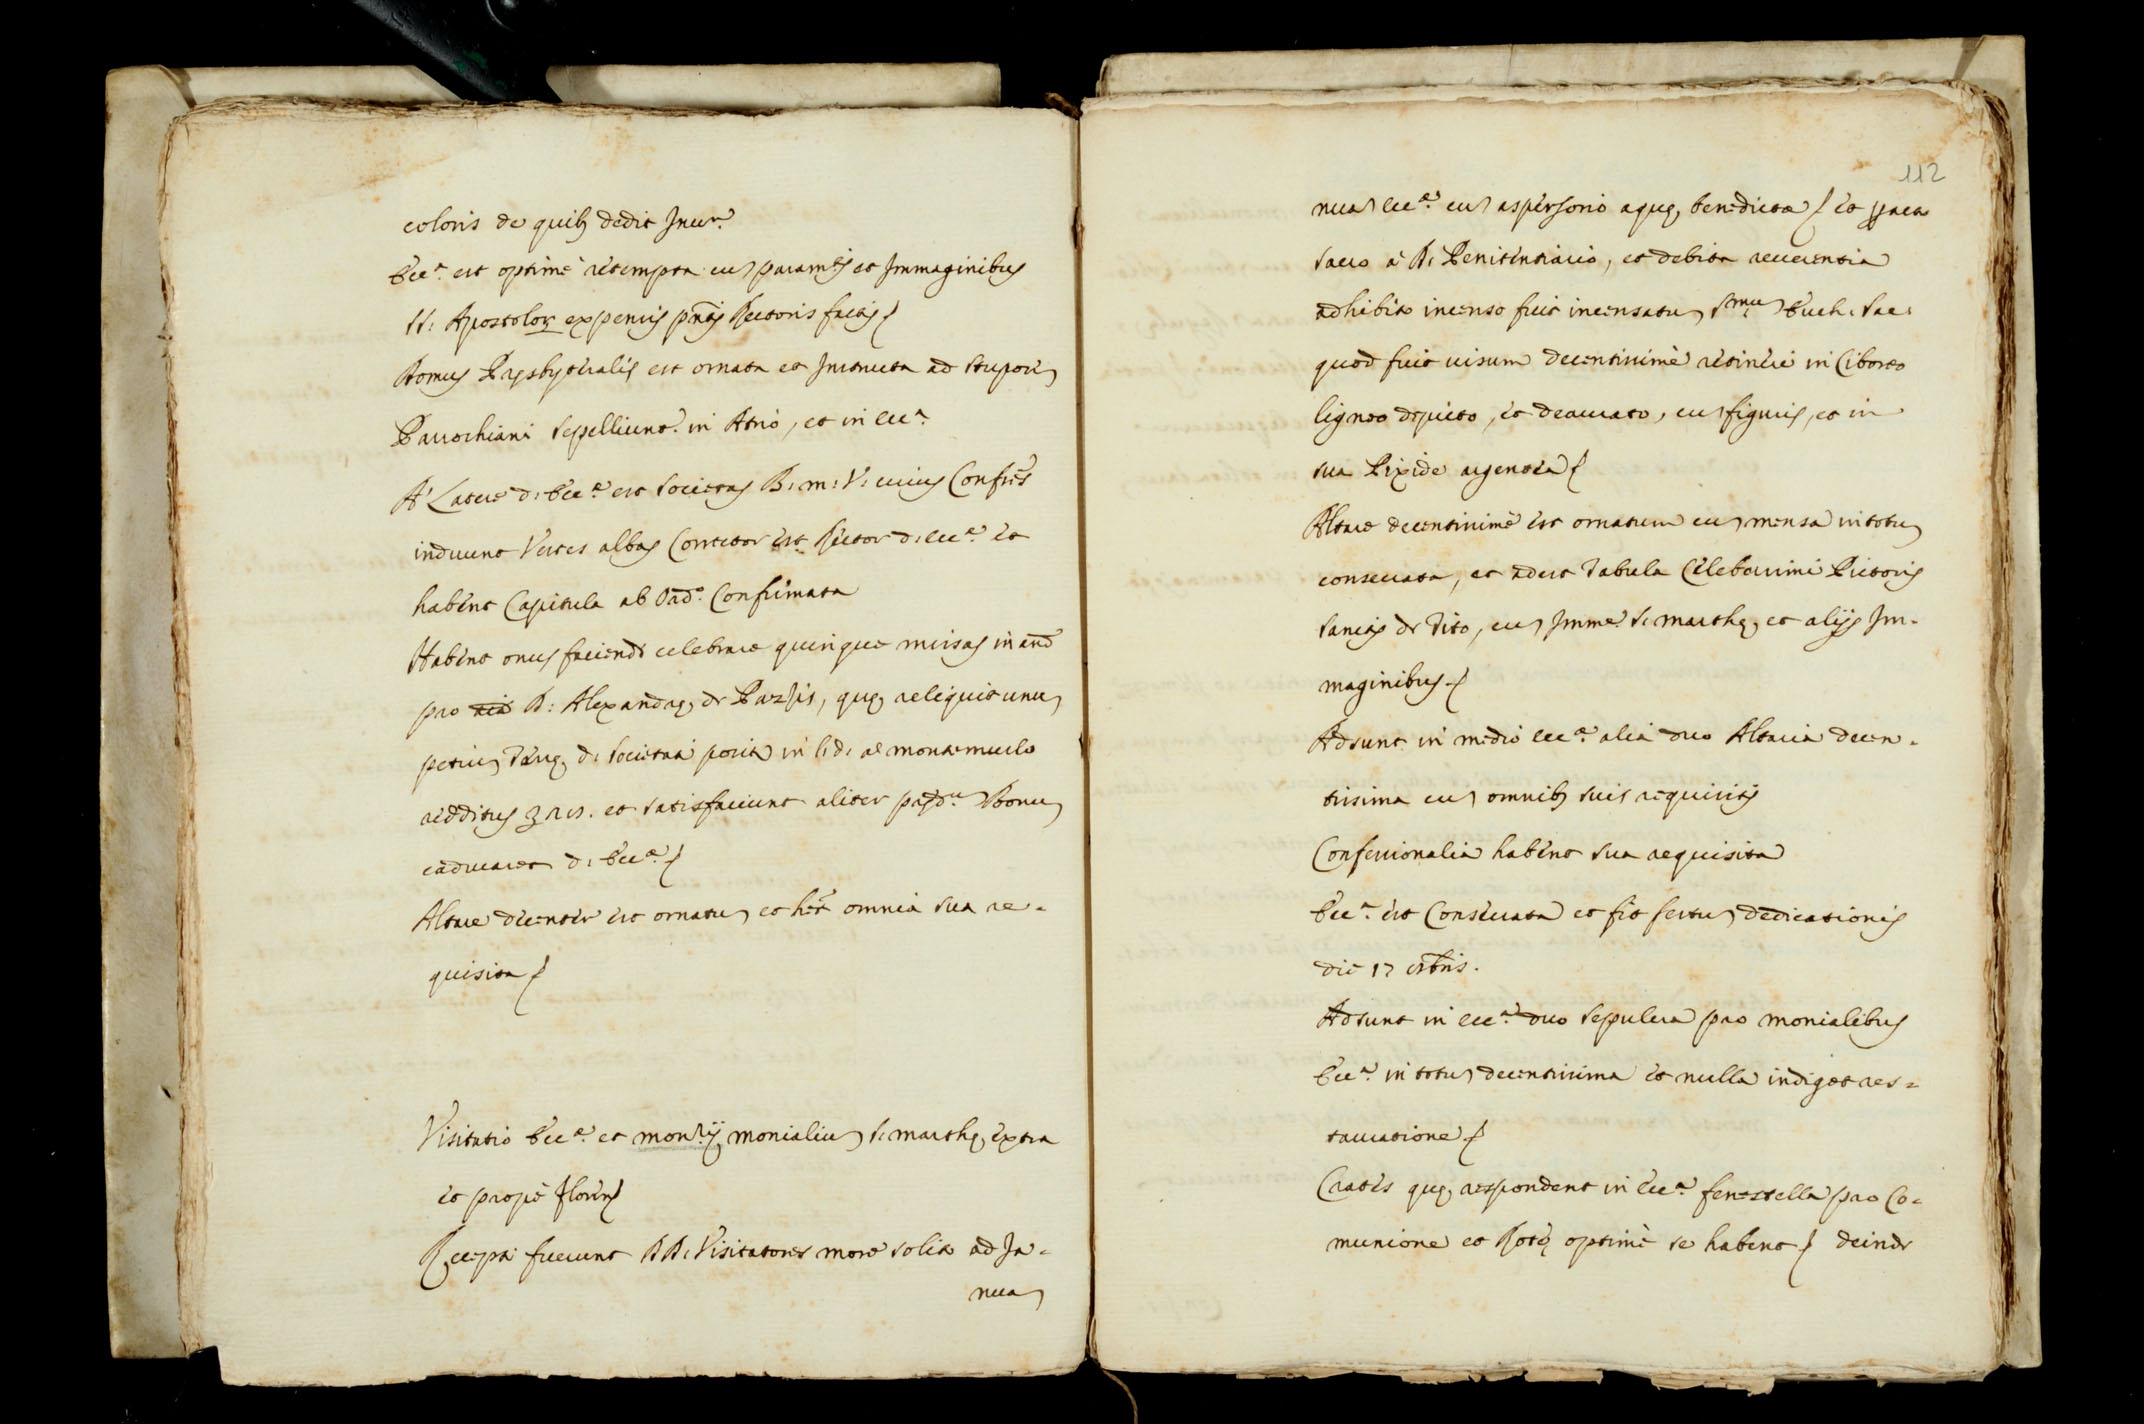 coloris de quib9 dedit Inur.
Ecc.a est optimè retempta cu paramtis et Immaginibus
SS: Apostolor expensis pntis Rectoris factis
Domus Presbyteralis est ornata et Instructa ad stuporem
Parrochiani sepelliunt. in Atrio, et in ecc.a
A' Latere d: Ecc.e est societas B: M: V: cuius Confres
induunt Vestes albas Corrector est Rector d: ecc.e et
habent Capitula ab Ord.o Confirmata
Habent onus faciendi celebrare quinque missas in anno
pro D: Alexandra de Pazzis, que reliquit unu
petiu Terre d: societati posita in l: d:
redditus et satisfaciunt aliter
d: Ecc.e
Altare decenter est ornatu et het omnia sua re-
quisita
Visitatio Ecc.e et monrij monialiu S: Marthe extra
et propè Floren
Recepti fuerunt RR: Visitatores more solito ad Ja-
nua
112
nua ecc.e cu aspersorio aque benedicte et
sacro à R: Penitentiario, et debita reuerentia
adhibito incenso fuit incensatu S.mu Euch: Sac:
quod fuit uisum decentissimè retineri in Ciborio
ligneo depicto, et deaurato, cu figuris, et in
sua Pixide argentea
Altare decentissimè est ornatum cu mensa in totu
consecrata, et adest Tabula Celeberrimi Pictoris
Santis de Tito, cu Imme: S: Marthe, et alijs Im-
maginibus.
Adsunt in medio ecc.e alia duo Altaria decen-
tissima cu omnib9 suis requisitis
Confessionalia habent sua requisita
Ecc.a est Consecrata et fit festu dedicationis
die 17
Adsunt in ecc.a duo sepulcra pro monialibus
Ecc.a in totu decentissima et nulla indiget res-
tauratione
Crates que respondent in ecc.a fenestella pro Co-
munione et Rote optimè se habent deinde